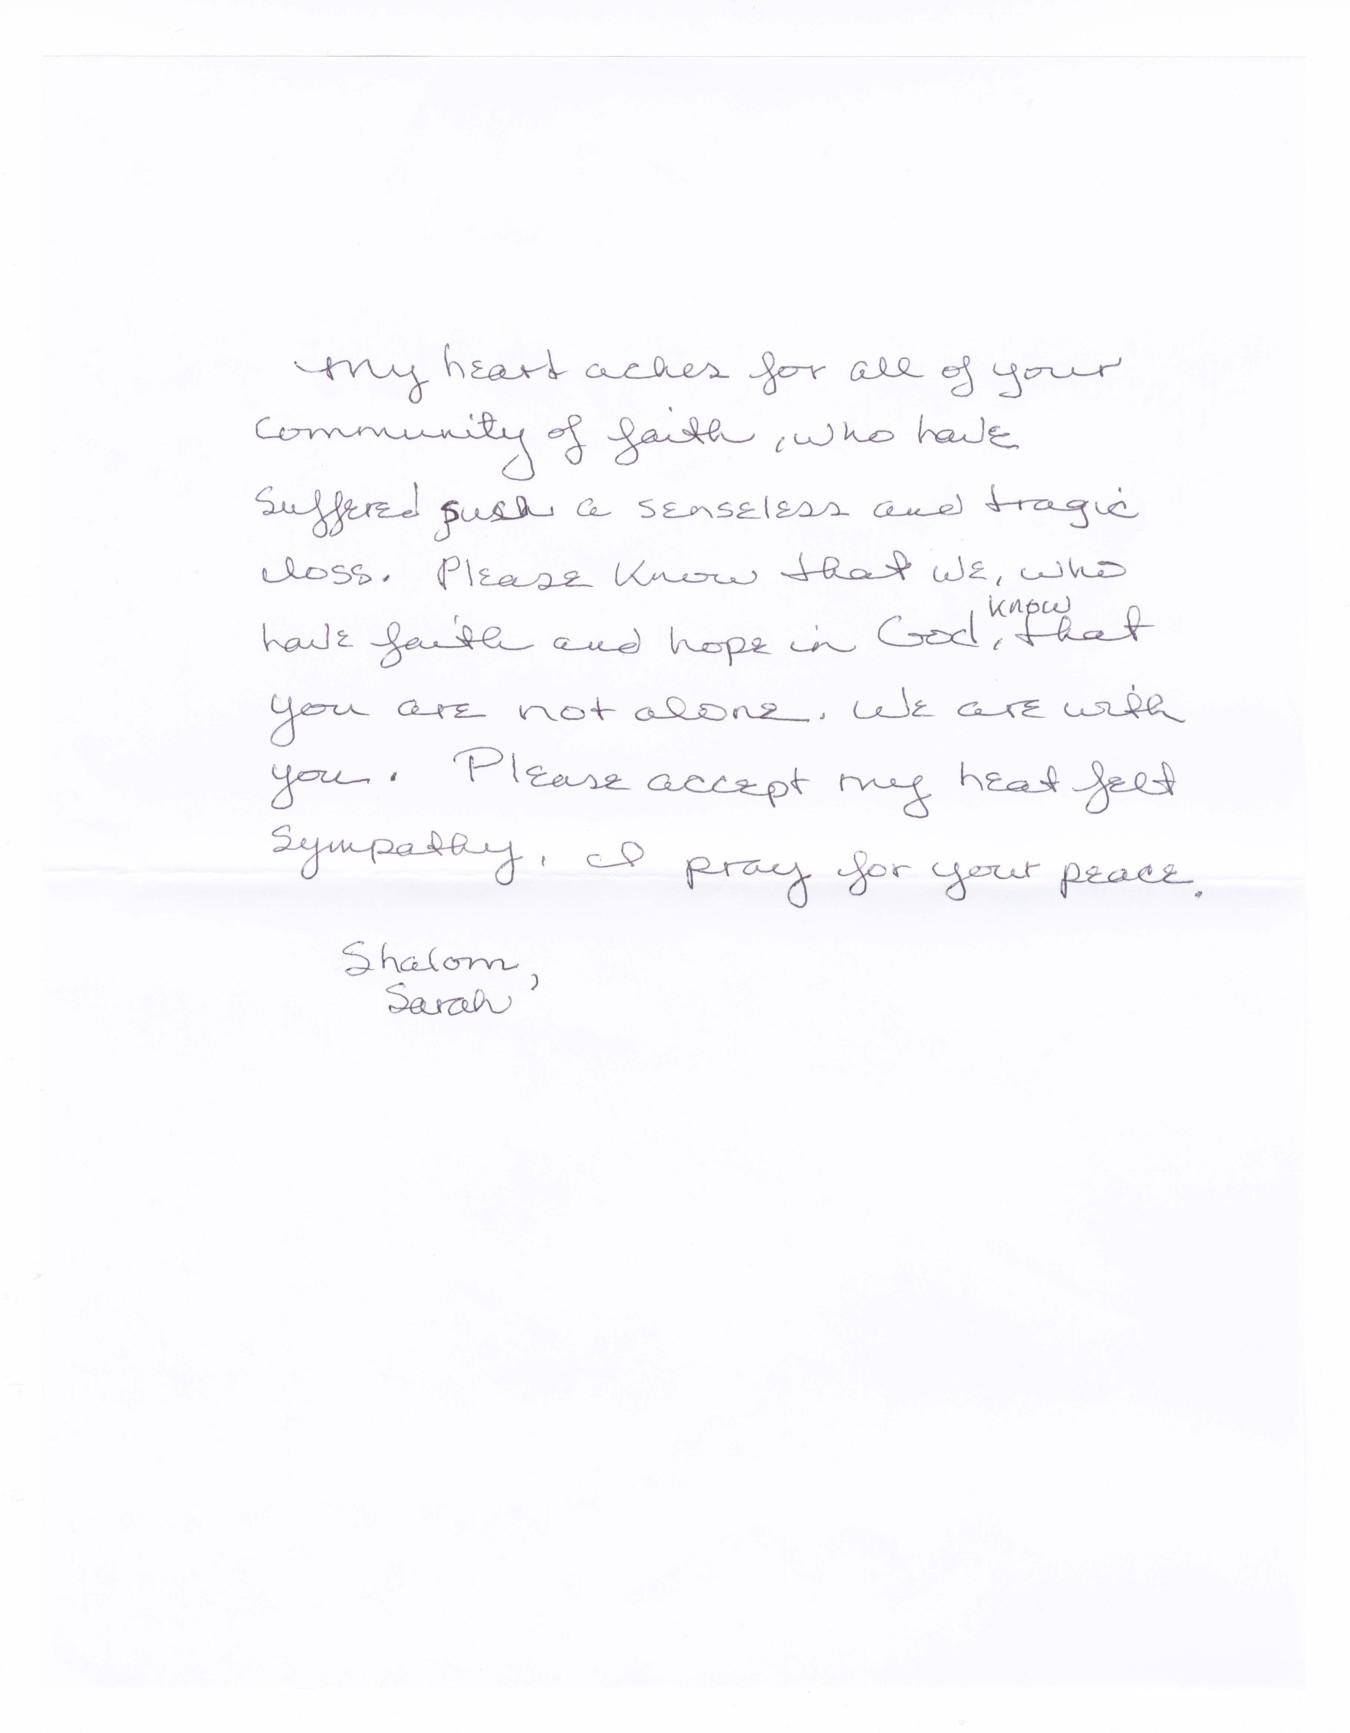 My heart aches for all of your
Community of faith, who have
suffered such a senseless and tragic
loss. Please know that we, who
have faith and hope in God, know that
you are not alone. We are with
you. Please accept my heat felt
sympathy. I pray for your peace.
Shalom,
Sarah